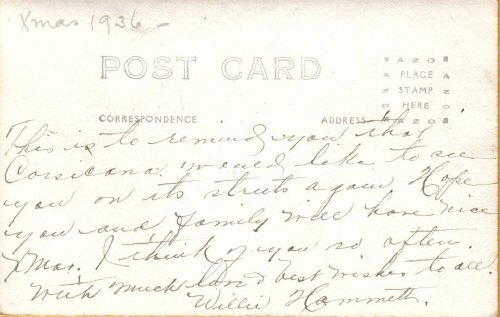 Xmas 1936 -
POST CARD
AZO
PLACE
STAMP
HERE
AZO
CORRESPONDENCE
ADDRESS
This is to remind you that
Corsicana would like to see
you on its streets again. Hope
you and family will have nice
Xmas. I think of you so often.
With much love & best wishes to all.
Willie Hammett.